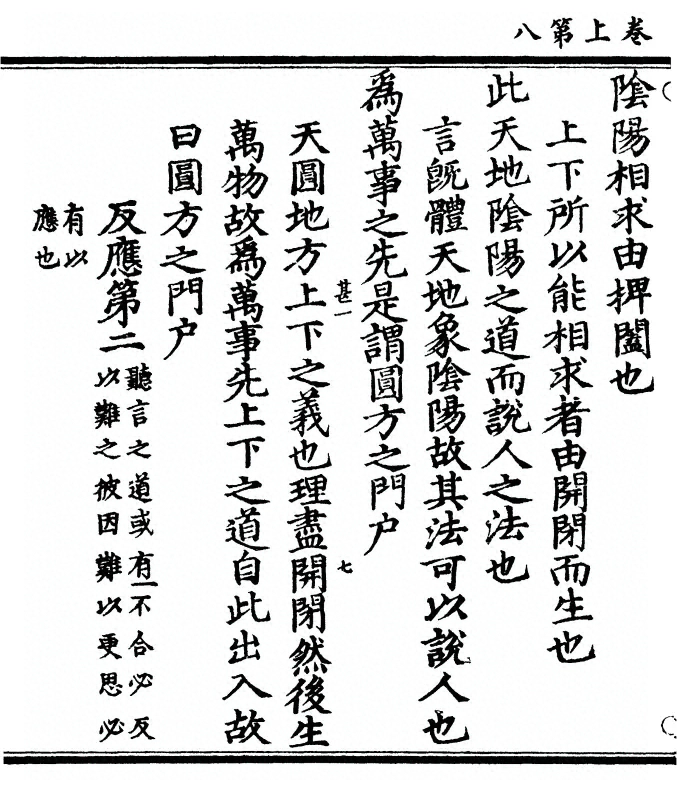 卷上第八
陰陽相求由捭闔也
上下所以能相求者由開閉而生也
此天地陰陽之道而說人之法也
言旣體天地象陰陽故其法可以說人也
爲萬事之先是謂圓方之門户
甚一
七
天圓地方上下之義也理盡開閉然後生
萬物故爲萬事先上下之道自此出入故
曰圓方之門户
反應第二
聽言之道或有不合必反
以難之彼因難以更思必
有以
應也